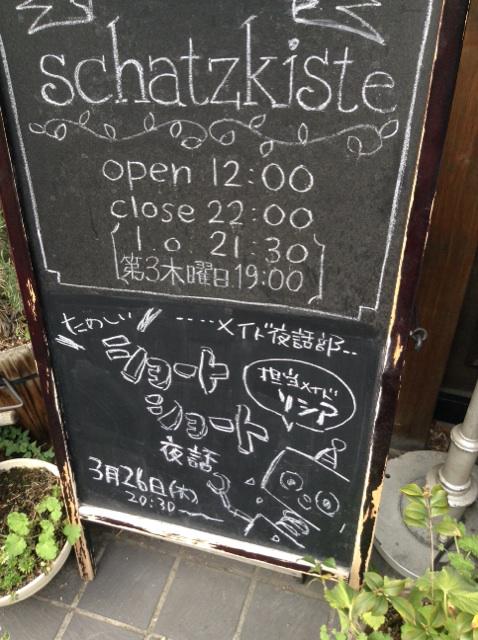 schatzkiste
open 12:00
close 22:00
l.o 21:30
第3木曜日19:00
たのしい
----メイド夜話部--
ショート
ショート
夜話
担当メイド
リシア
3月26日(木)
20:30〜